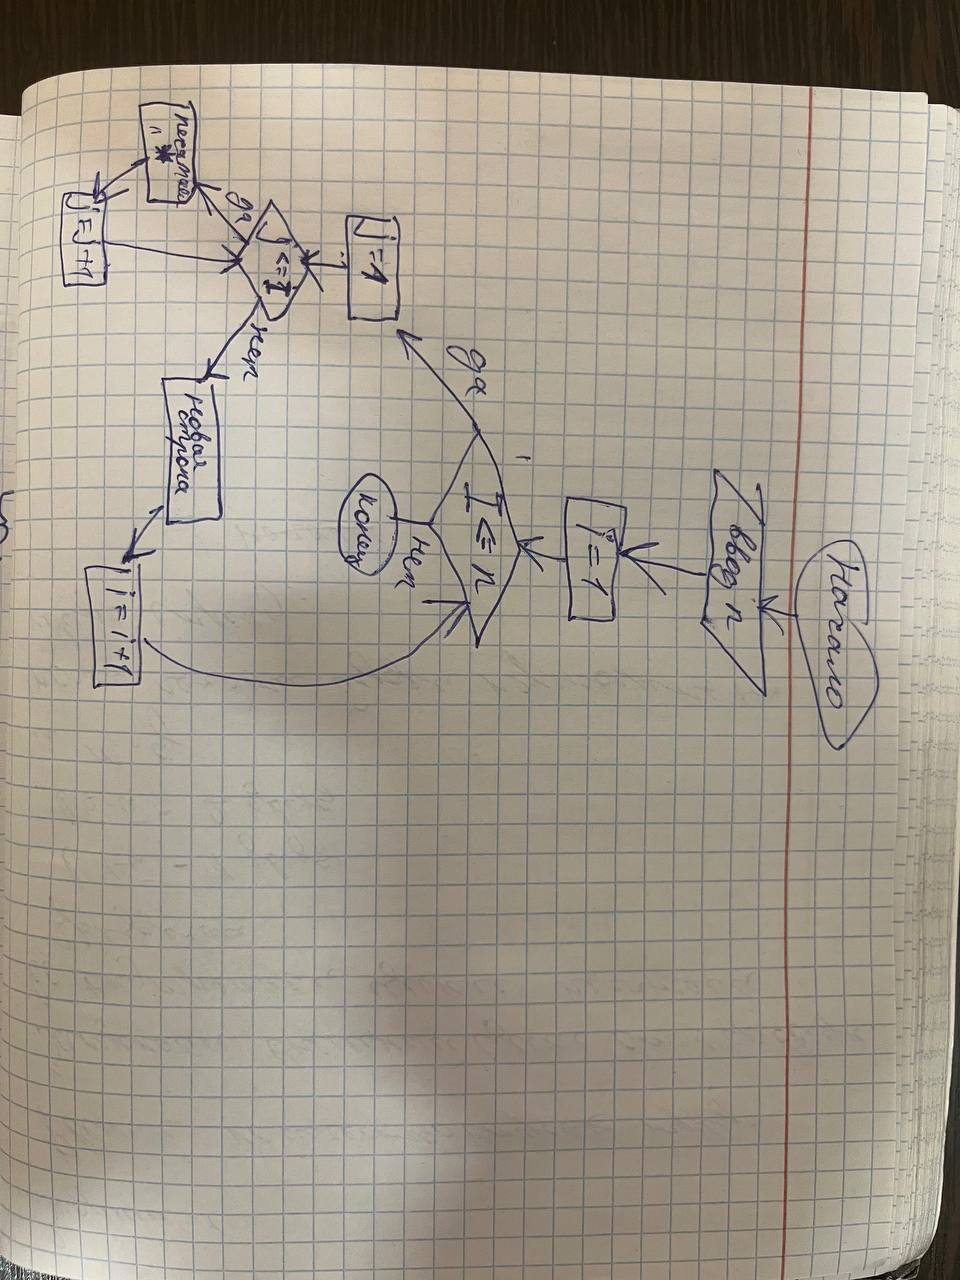 Начало
ввод n
i = 1
I <= n
да
нет
конец
j = 1
j <= I
да
нет
"*"
j = j + 1
новая
строка
i = i + 1